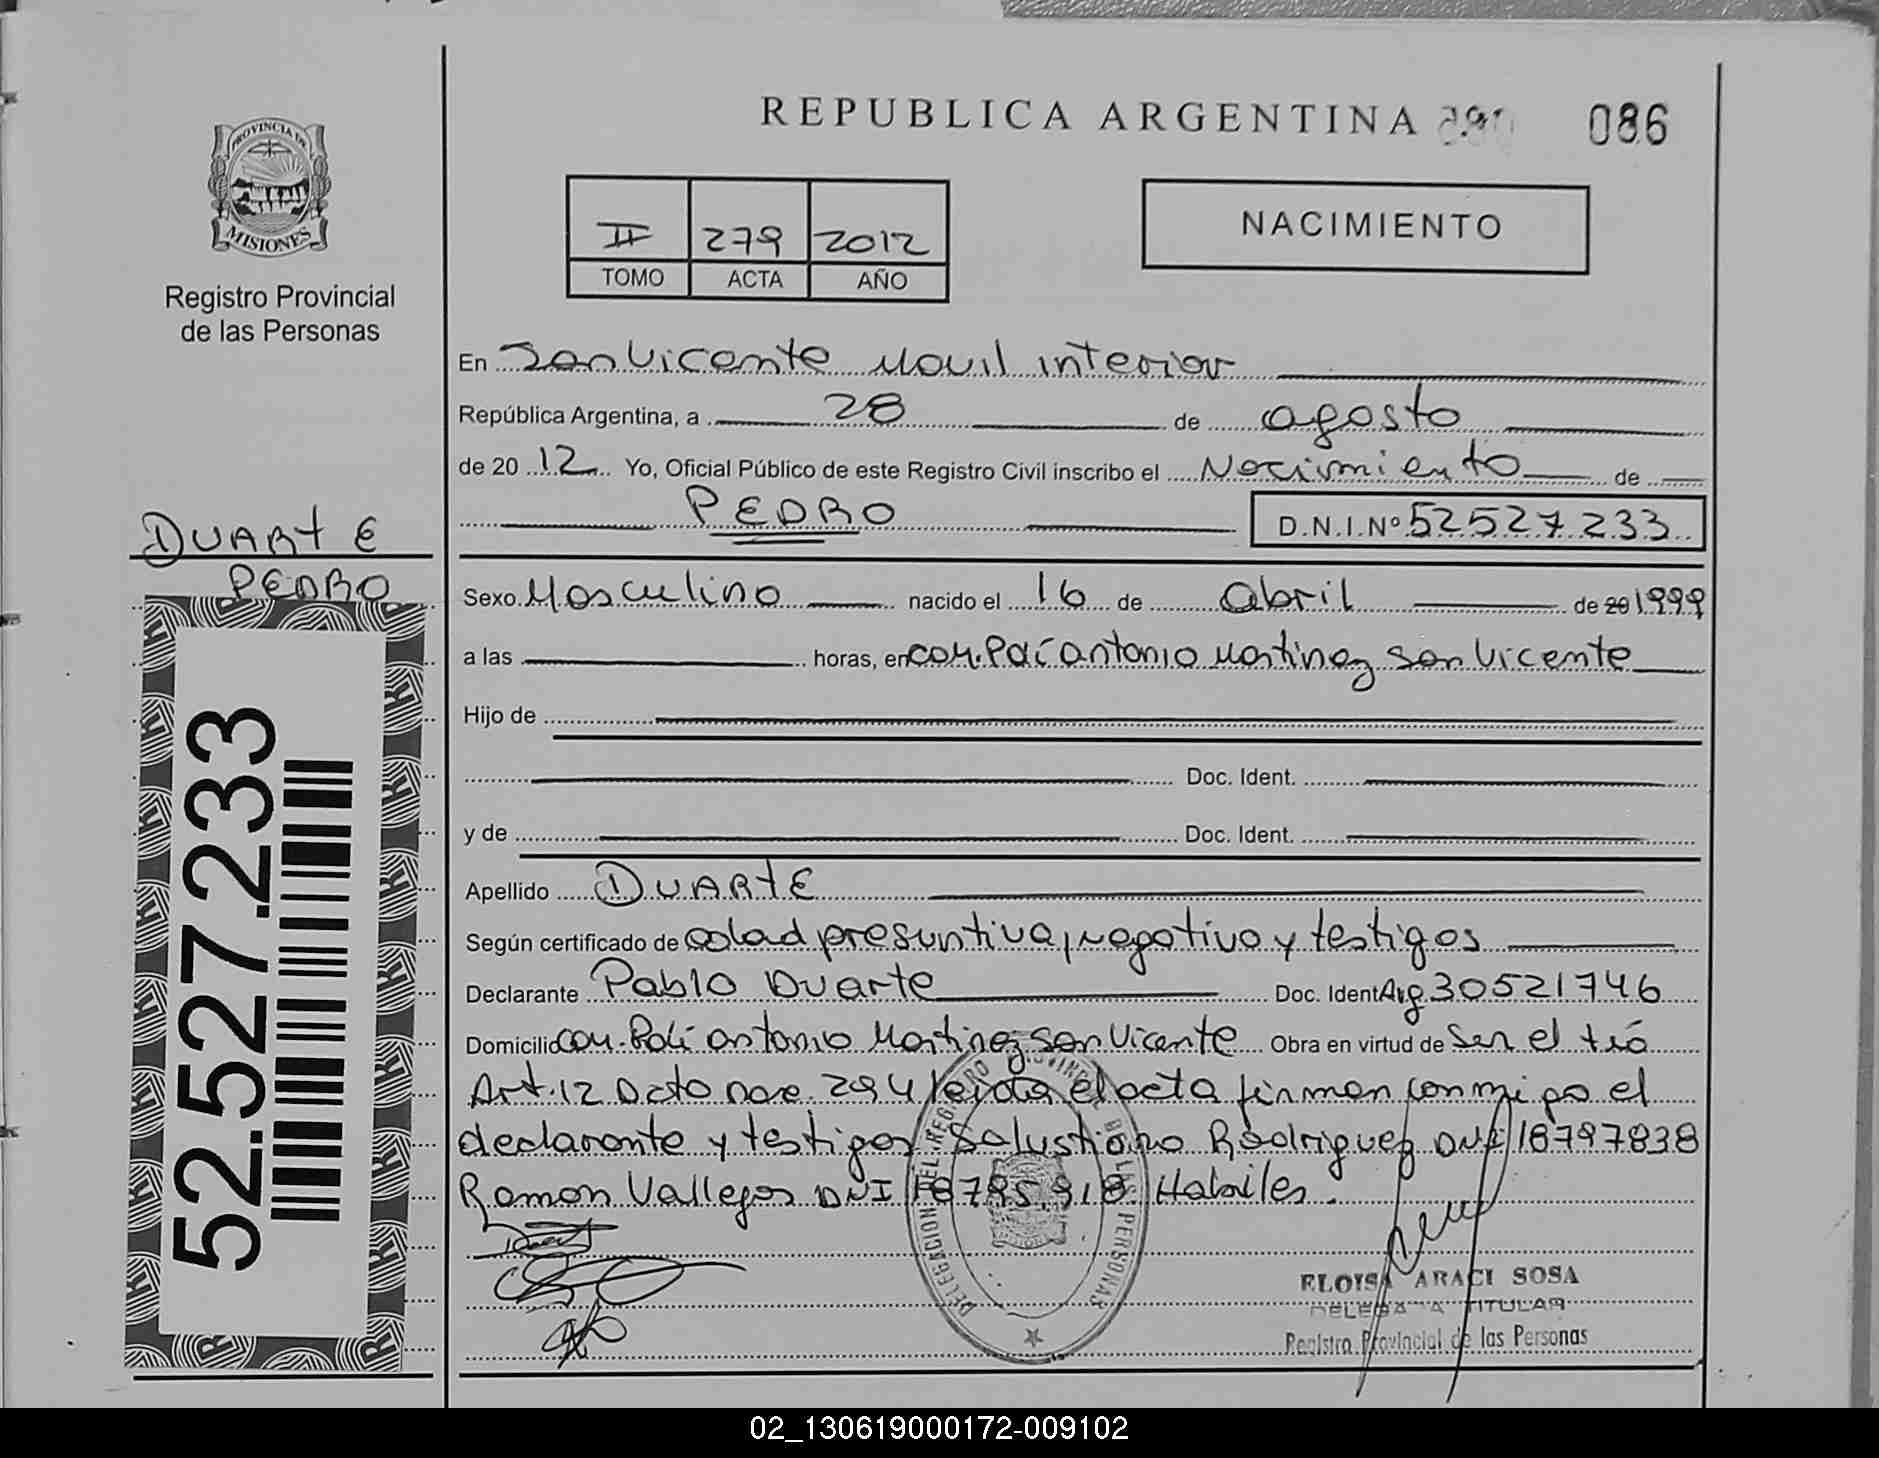 REPUBLICA ARGENTINA
086
PROVINCIA DE
MISIONES
Registro Provincial
de las Personas
II 279 2012
TOMO ACTA AÑO
NACIMIENTO
En San Vicente Movil interior
República Argentina, a 28 de agosto
de 20 12 Yo, Oficial Público de este Registro Civil inscribo el Nacimiento de
PEDRO D.N.I.Nº 52527233
DUARTE
PEDRO
Sexo Masculino nacido el 16 de Abril de 20 1999
a las horas, en com. Paí antonio Martinez San Vicente
Hijo de
Doc. Ident.
y de Doc. Ident.
Apellido DUARTE
Según certificado de edad presuntiva, negativo y testigos
Declarante Pablo Duarte Doc. Ident Arg. 30521746
Domicilio com. Paí antonio Martinez San Vicente Obra en virtud de ser el tió
Art. 12 Dcto nac. 294 leida el acta firman conmigo el
declarante y testigos Salustiano Rodriguez DNI 18797838
Ramon Vallejos DNI Habiles.
DELEGACION DEL REGISTRO PROVINCIAL DE LAS PERSONAS
ELOISA ARACI SOSA
DELEGADA TITULAR
Registro Provincial de las Personas
52.527.233
02_130619000172-009102